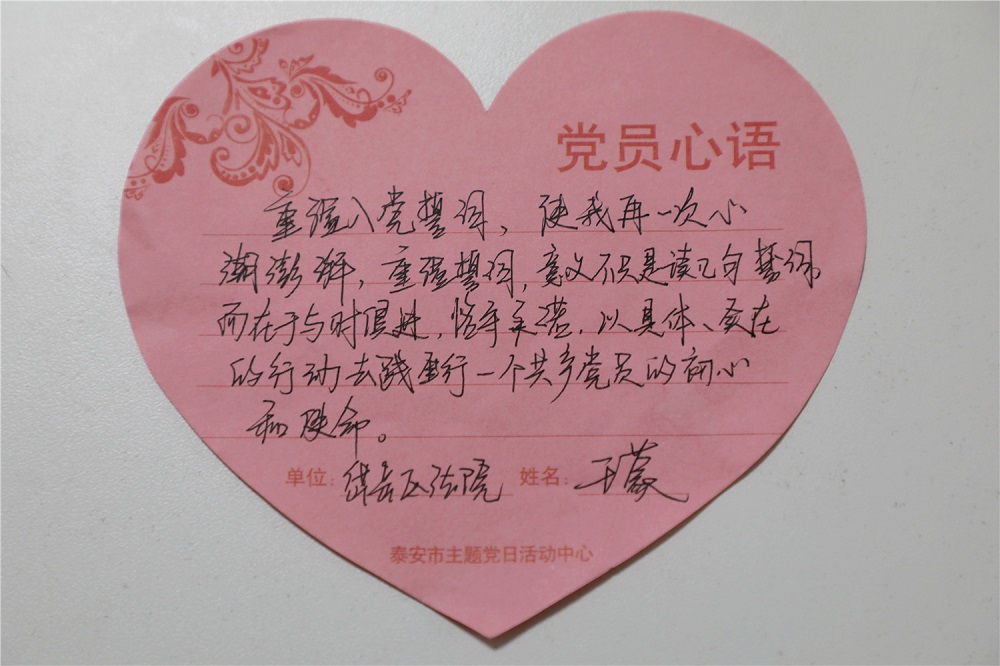 党员心语
重温入党誓词，使我再一次心
潮澎湃，重温誓词，意义不只是读几句誓词，
而在于与时俱进，恪守承诺，以具体、实在
的行动去践行一个共产党员的初心
和使命。
单位：岱岳区法院 姓名：王蒙
泰安市主题党日活动中心